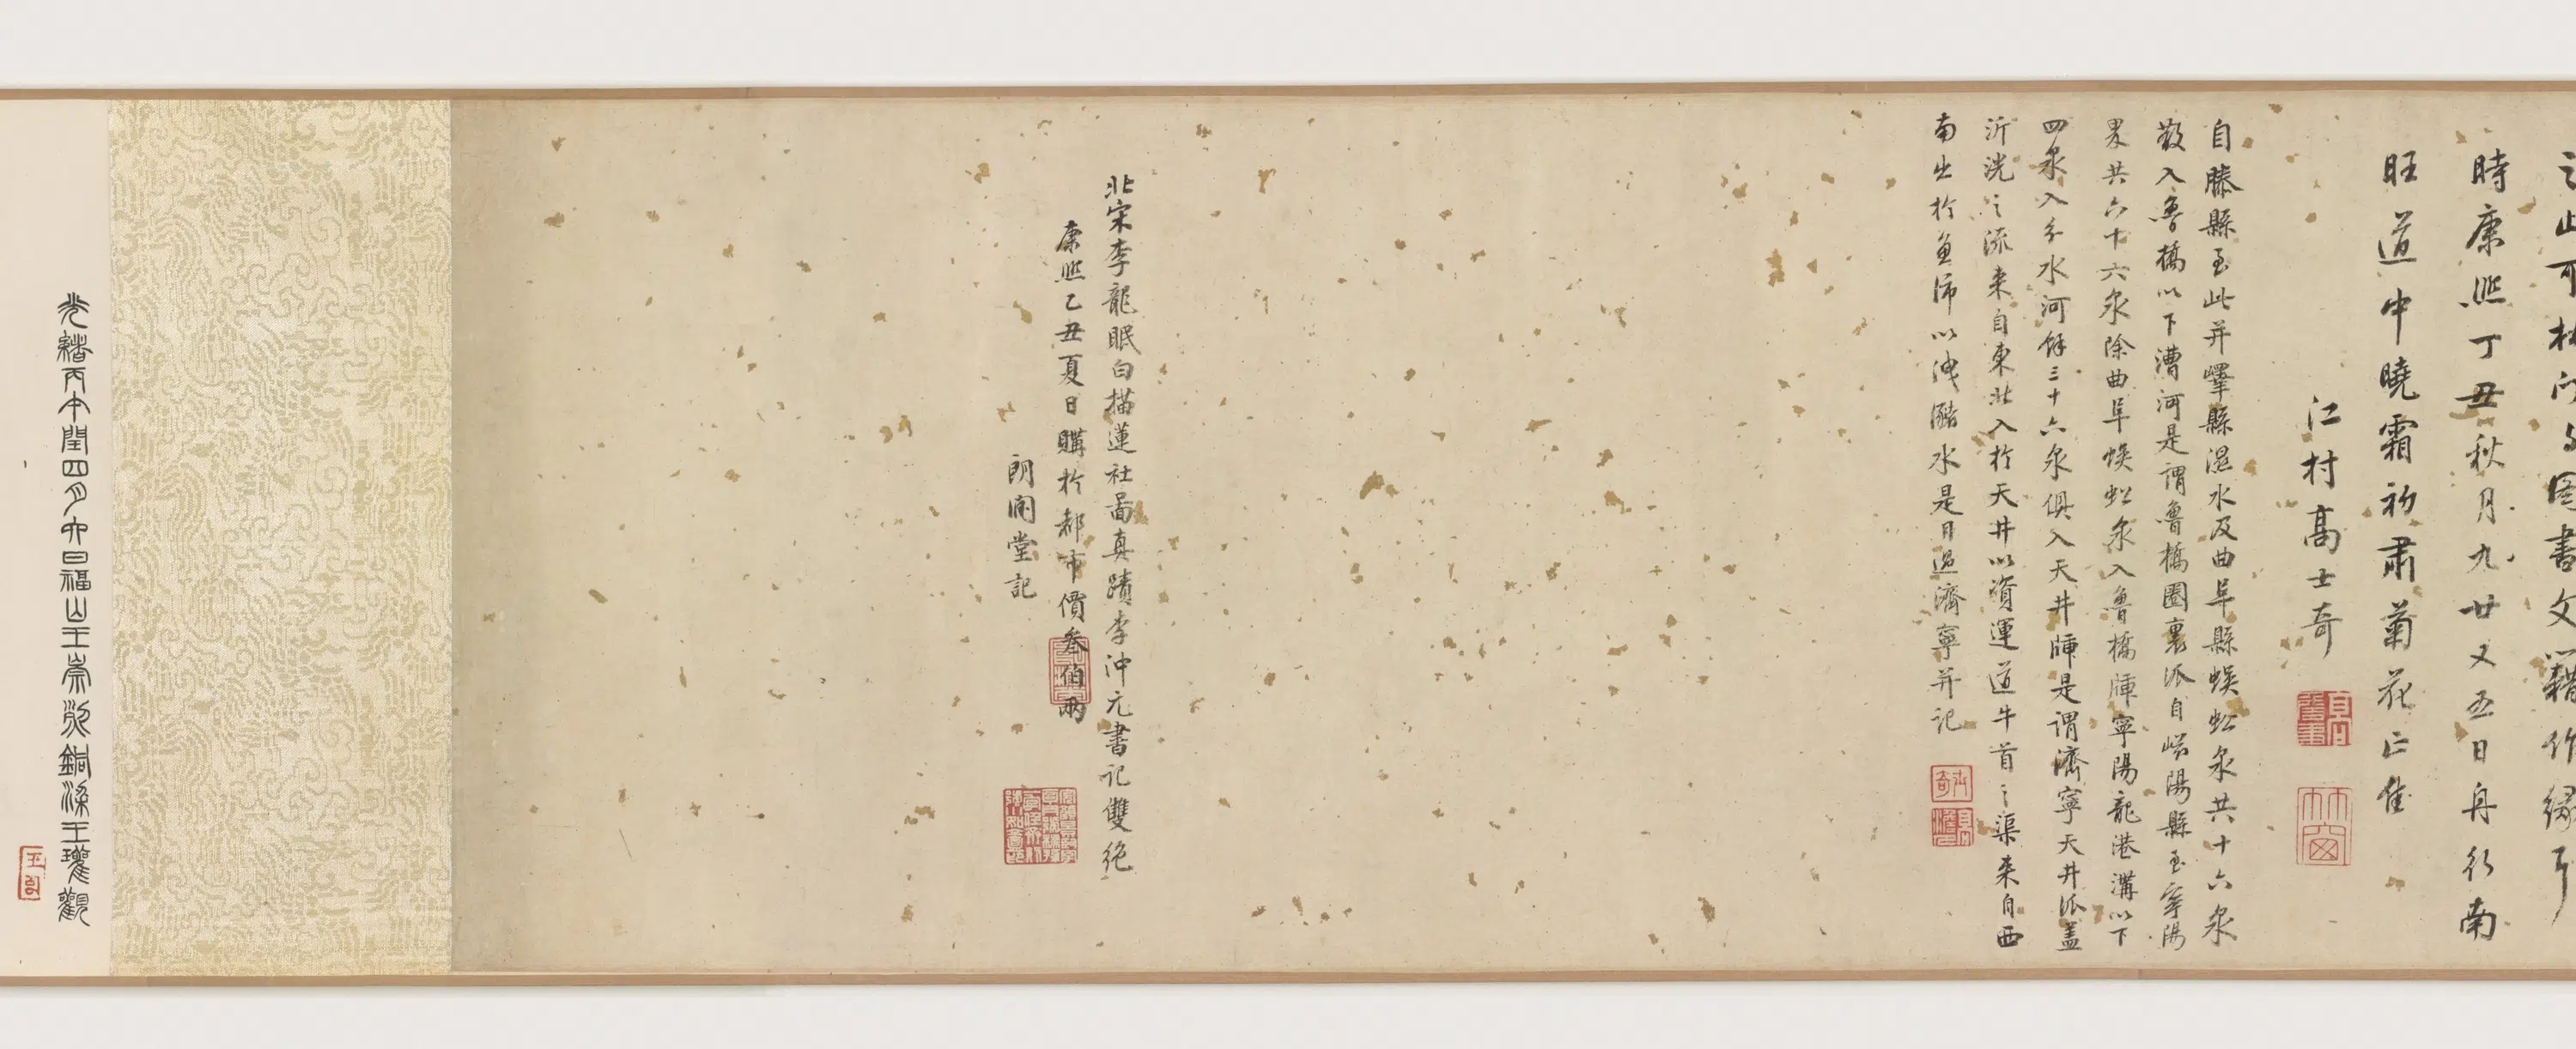 之此可
時康熙丁丑秋月九廿又五日舟行南
旺道中曉霜初肅菊花正佳
江村高士奇
自滕縣至此并嶧縣溫水及曲阜縣蜈蚣泉共十六泉
散入魯橋以下漕河是謂魯橋圈裏派自嶧陽縣至寧陽
界共六十六泉除曲阜蜈蚣泉入魯橋牐寧陽龍港溝以下
四泉入汶水河餘三十六泉俱入天井牐是謂濟寧天井派蓋
沂洸之流來自東北入於天井以資運道牛首之渠來自西
南出於魚沛以洩瀦水是日過濟寧并記
北宋李龍眠白描蓮社啚真蹟李沖元書記雙絕
康熙乙丑夏日購於都市價叁伯兩
朗閒堂記
光緒丙申閏四月六日福山王崇烈銅梁王瓘觀